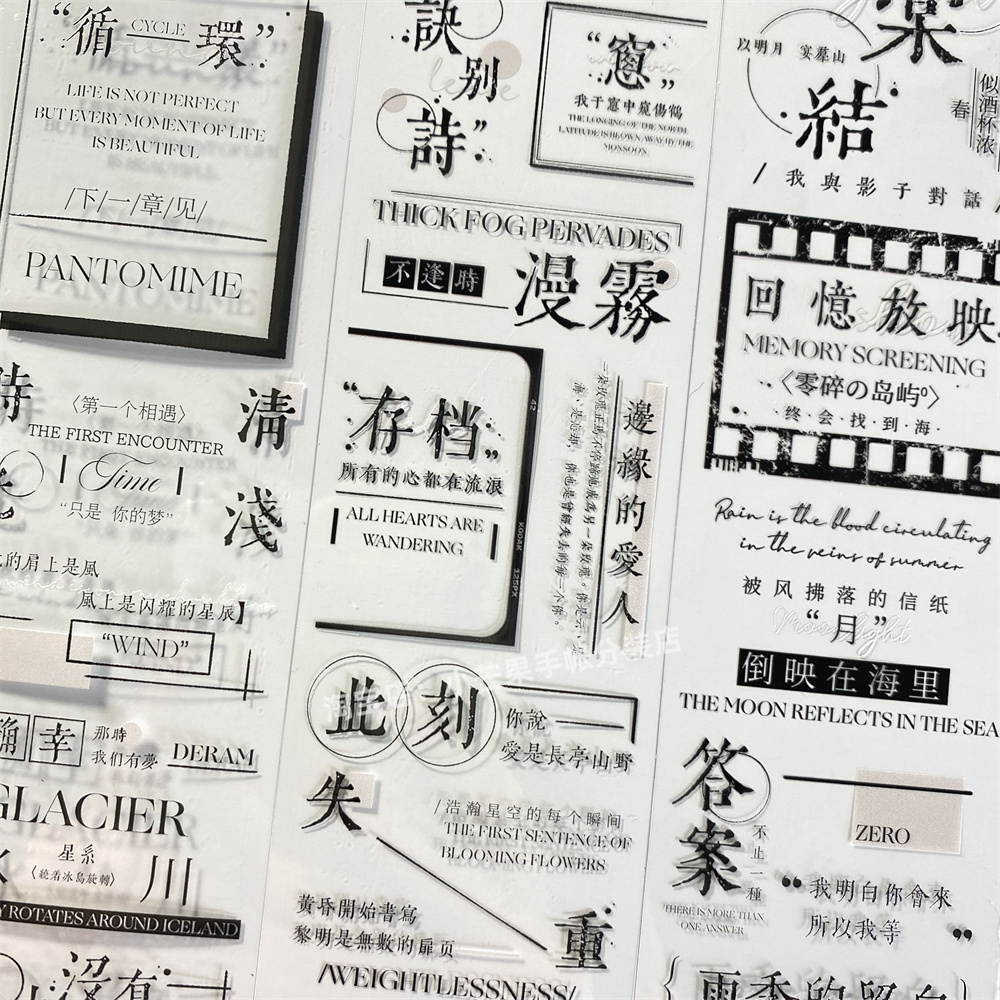 “循環”
CYCLE
LIFE IS NOT PERFECT
BUT EVERY MOMENT OF LIFE
IS BEAUTIFUL
/下/一/章/见/
PANTOMIME
清淺
〈第一个相遇〉
THE FIRST ENCOUNTER
Time
“只是 你的梦”
的肩上是風
風上是闪耀的星辰】
“WIND”
幸
那時
我们有夢
DERAM
GLACIER
川
星系
〈繞着冰島旋轉〉
Y ROTATES AROUND ICELAND
沒有
訣别詩”
“窓”
我于窓中窺傷鴨
THE LONGING OF THE NORTH
LATITUDE IS BLOWN AWAY BY THE
MONSOON
THICK FOG PERVADES
不逢時
漫霧
“存档”
所有的心都在流浪
ALL HEARTS ARE
WANDERING
42
KODAK
125PX
邊緣的愛人
此刻
你說
愛是長亭山野
失重
/浩瀚星空的每个瞬间
THE FIRST SENTENCE OF
BLOOMING FLOWERS
黄昏開始書寫
黎明是無數的扉页
/WEIGHTLESSNESS/
結
以明月 宴羣山
春
似酒杯浓
/ 我與影子對話 /
回憶放映
MEMORY SCREENING
〈零碎の岛屿〉
·终·会·找·到·海·
Rain is the blood circulating
in the veins of summer
被风拂落的信纸
“月”
Moonlight
倒映在海里
THE MOON REFLECTS IN THE SEA
答案
不止一種
THERE IS MORE THAN
ONE ANSWER
ZERO
“我明白你會來
所以我等”
雨季的留白